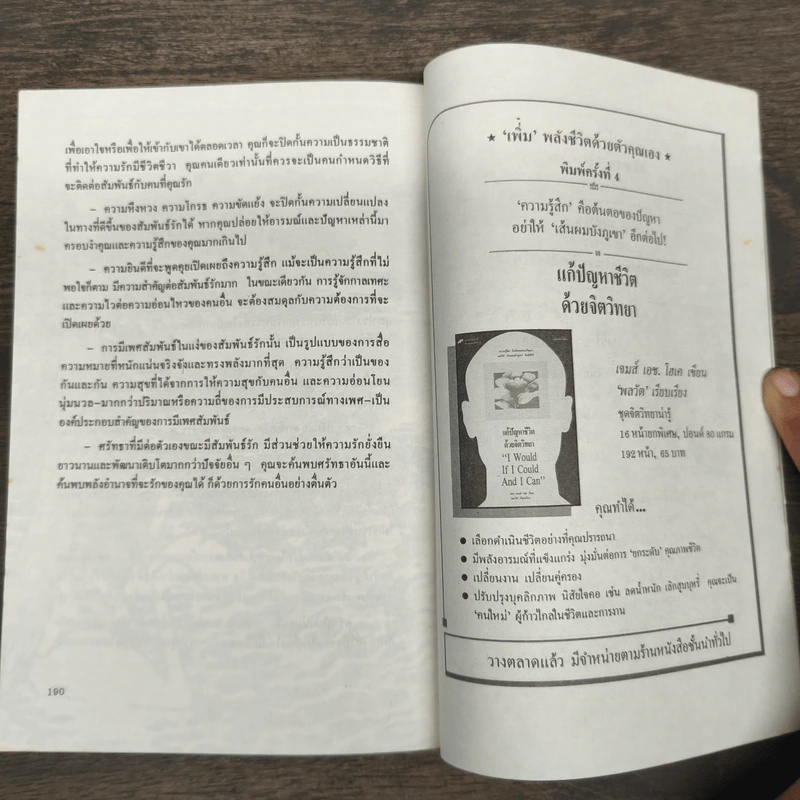 เพื่อเอาใจหรือเพื่อให้เข้ากับเขาได้ตลอดเวลา คุณก็จะปิดกั้นความเป็นธรรมชาติ
ที่ทำให้ความรักมีชีวิตชีวา คุณคนเดียวเท่านั้นที่ควรจะเป็นคนกำหนดวิธีที่
จะติดต่อสัมพันธ์กับคนที่คุณรัก
– ความหึงหวง ความโกรธ ความขัดแย้ง จะปิดกั้นความเปลี่ยนแปลง
ในทางที่ดีขึ้นของสัมพันธ์รักได้ หากคุณปล่อยให้อารมณ์และปัญหาเหล่านี้มา
ครอบงำคุณและความรู้สึกของคุณมากเกินไป
– ความยินดีที่จะพูดคุยเปิดเผยถึงความรู้สึก แม้จะเป็นความรู้สึกที่ไม่
พอใจก็ตาม มีความสำคัญต่อสัมพันธ์รักมาก ในขณะเดียวกัน การรู้จักกาลเทศะ
และความไวต่อความอ่อนไหวของคนอื่น จะต้องสมดุลกับความต้องการที่จะ
เปิดเผยด้วย
– การมีเพศสัมพันธ์ในแง่ของสัมพันธ์รักนั้น เป็นรูปแบบของการสื่อ
ความหมายที่หนักแน่นจริงจังและทรงพลังมากที่สุด ความรู้สึกว่าเป็นของ
กันและกัน ความสุขที่ได้จากการให้ความสุขกับคนอื่น และความอ่อนโยน
นุ่มนวล–มากกว่าปริมาณหรือความถี่ของการมีประสบการณ์ทางเพศ–เป็น
องค์ประกอบสำคัญของการมีเพศสัมพันธ์
– ศรัทธาที่มีต่อตัวเองขณะมีสัมพันธ์รัก มีส่วนช่วยให้ความรักยั่งยืน
ยาวนานและพัฒนาเติบโตมากกว่าปัจจัยอื่น ๆ คุณจะค้นพบศรัทธาอันนี้และ
ค้นพบพลังอำนาจที่จะรักของคุณได้ ก็ด้วยการรักคนอื่นอย่างตื่นตัว
190
★ ‘เพิ่ม’ พลังชีวิตด้วยตัวคุณเอง ★
พิมพ์ครั้งที่ 4
‘ความรู้สึก’ คือต้นตอของปัญหา
อย่าให้ ‘เส้นผมบังภูเขา’ อีกต่อไป!
แก้ปัญหาชีวิต
ด้วยจิตวิทยา
แก้ปัญหาชีวิต
ด้วยจิตวิทยา
“I Would
If I Could
And I Can”
เจมส์ เอช. โฮเค เขียน
‘พลวัต’ เรียบเรียง
ชุดจิตวิทยาน่ารู้
16 หน้ายกพิเศษ, ปอนด์ 80 แกรม
192 หน้า, 65 บาท
คุณทำได้...
● เลือกดำเนินชีวิตอย่างที่คุณปรารถนา
● มีพลังอารมณ์ที่แข็งแกร่ง มุ่งมั่นต่อการ ‘ยกระดับ’ คุณภาพชีวิต
● เปลี่ยนงาน เปลี่ยนคู่ครอง
● ปรับปรุงบุคลิกภาพ นิสัยใจคอ เช่น ลดน้ำหนัก เลิกสูบบุหรี่ คุณจะเป็น
‘คนใหม่’ ผู้ก้าวไกลในชีวิตและการงาน
วางตลาดแล้ว มีจำหน่ายตามร้านหนังสือชั้นนำทั่วไป